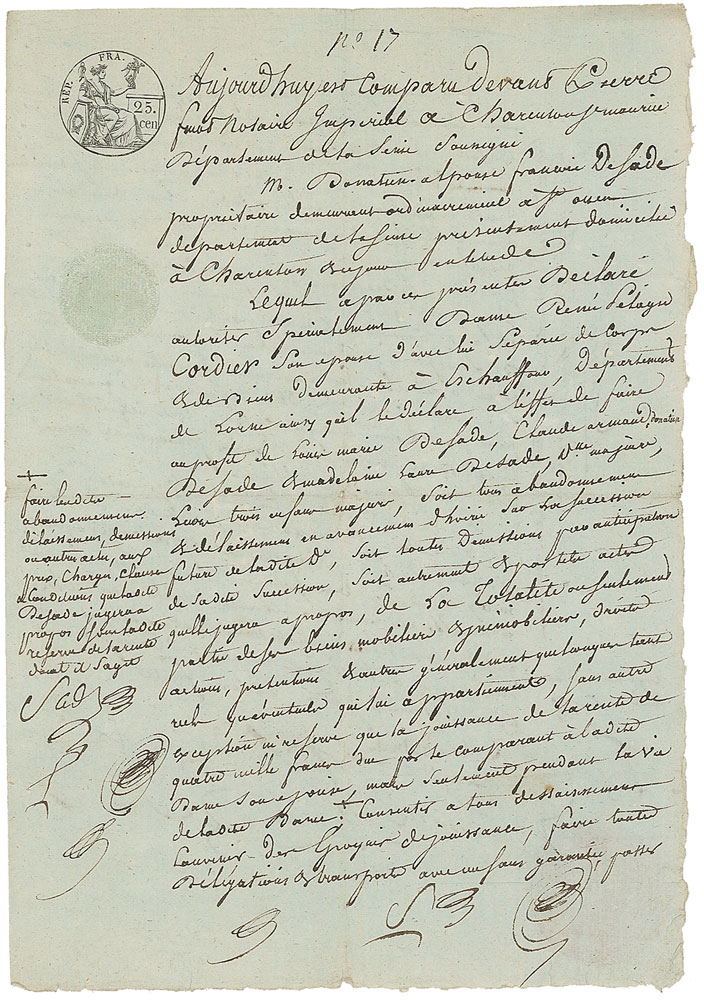 no 17
REP. FRA.
25. cen
Aujourdhuy est Comparu devant Pierre
finot Notaire Imperial à Charenton St maurice
Département de la Seine Soussigné
M. Donatien alponse francois Desade
propriétaire demeurant ordinairement à St ouen
département de la Seine présentement domicilié
à Charenton
Lequel a par ces présentes Déclaré
autoriser Spécialement Dame Renée Pélagie
Cordier Son epouse D'avec lui Séparée de Corps
& de Biens demeurante à Eschauffour, Département
de Lorne ainsy qu'il le déclare à l'éffet de faire
au profit de Louis marie Desade, Claude armand Donatien
Desade & madelaine Laure Desade, majeure,
Leurs trois enfans majeurs, Soit tous abandonnement
& délaissement en avancement d'hoirie Sur La Succession
future de ladite De, Soit toutes Demissions par anticipation
de Sadite Succession, Soit autrement & par tels actes
qu'elle jugera apropos, de La Totalité ou Seulement
partie de Ses biens mobiliers & immobiliers, droits
actions, prétentions & autres généralement quelconques tant
réels qu'éventuels qui lui appartiennent, Sans autre
exception ni reserve que la jouissance de la rente de
quatre mille francs due par le Comparant à ladite
Dame Son epouse, mais Seulement pendant la vie
de ladite Dame. + Consentir à tous dessaisissement
Convenir des Epoques de jouissance, faire toutes
Délégations & transports avec ou Sans garantie, passer
+
faire lesdits
abandonnemens,
délaissemens, demissions
ou autres actes, aux
prix, Charges, Clauses
& Conditions que ladite
De Desade jugera à
propos Sous ladite
réserve de la rente
dont il S'agit
Sade
S.